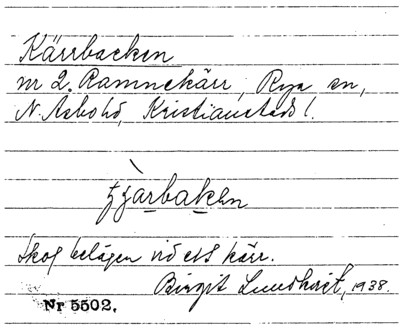 Kärrbacken
nr 2. Ramnekärr, Rya sn,
N. Åsbo hd, Kristianstads l.
tjạ̈rbaken
Skog belägen vid ett kärr.
Birgit Lundkvist, 1938.
Nr 5502.